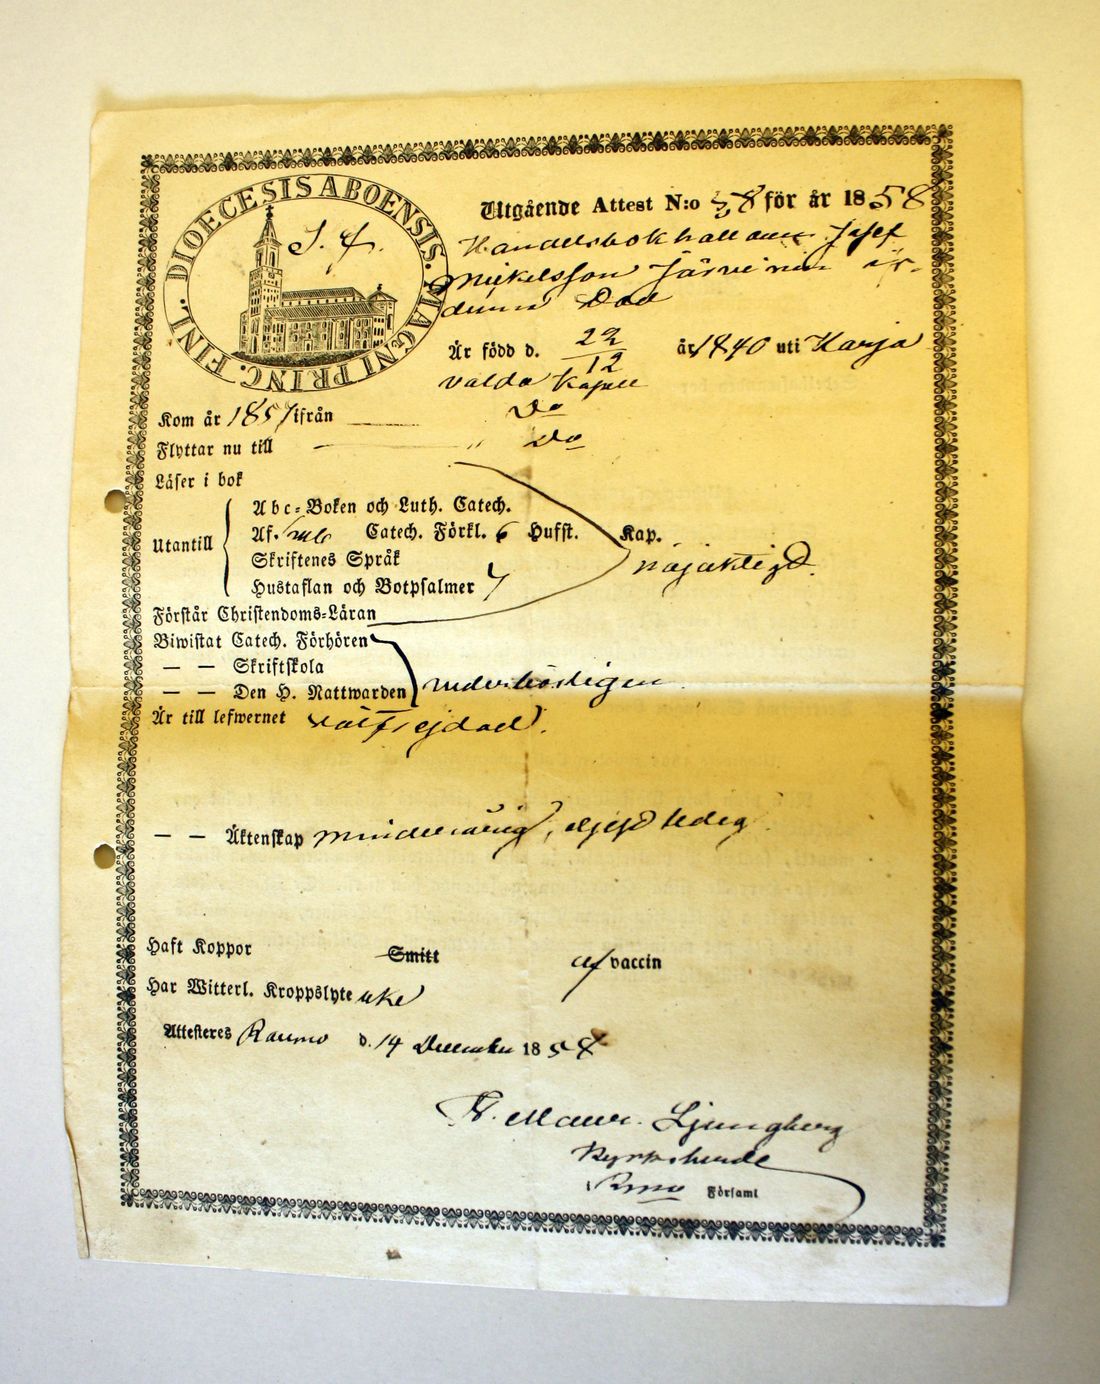 DIOECESIS ABOENSIS. MAGNI PRINC. FINL.
Utgående Attest N:o 38 för år 1858
Handelsbokhållaren Josef
Mickelsson Järvinen
Är född d. 22/12 år 1840 uti Karja
valda Kapell
Kom år 1857 ifrån Do
Flyttar nu till " Do
Läser i bok
Utantill
Abc-Boken och Luth. Catech.
Af. Catech. Förkl. 6 Hufst. Kap.
Skriftenes Språk
nöjaktigt.
Hustaflan och Botpsalmer
Förstår Christendoms-Läran
Biwistat Catech. Förhören
— — Skriftskola
— — Den H. Nattwarden vederbörligen
Är till lefwernet välfrejdad.
— — Äktenskap minderårig, ledig
Haft Koppor Smitt af vaccin
Har Witterl. Kroppslyte icke
Attesteres Raumo d. 14 December 1858
Ljungberg
Kyrkoherde
i Rmo Församl